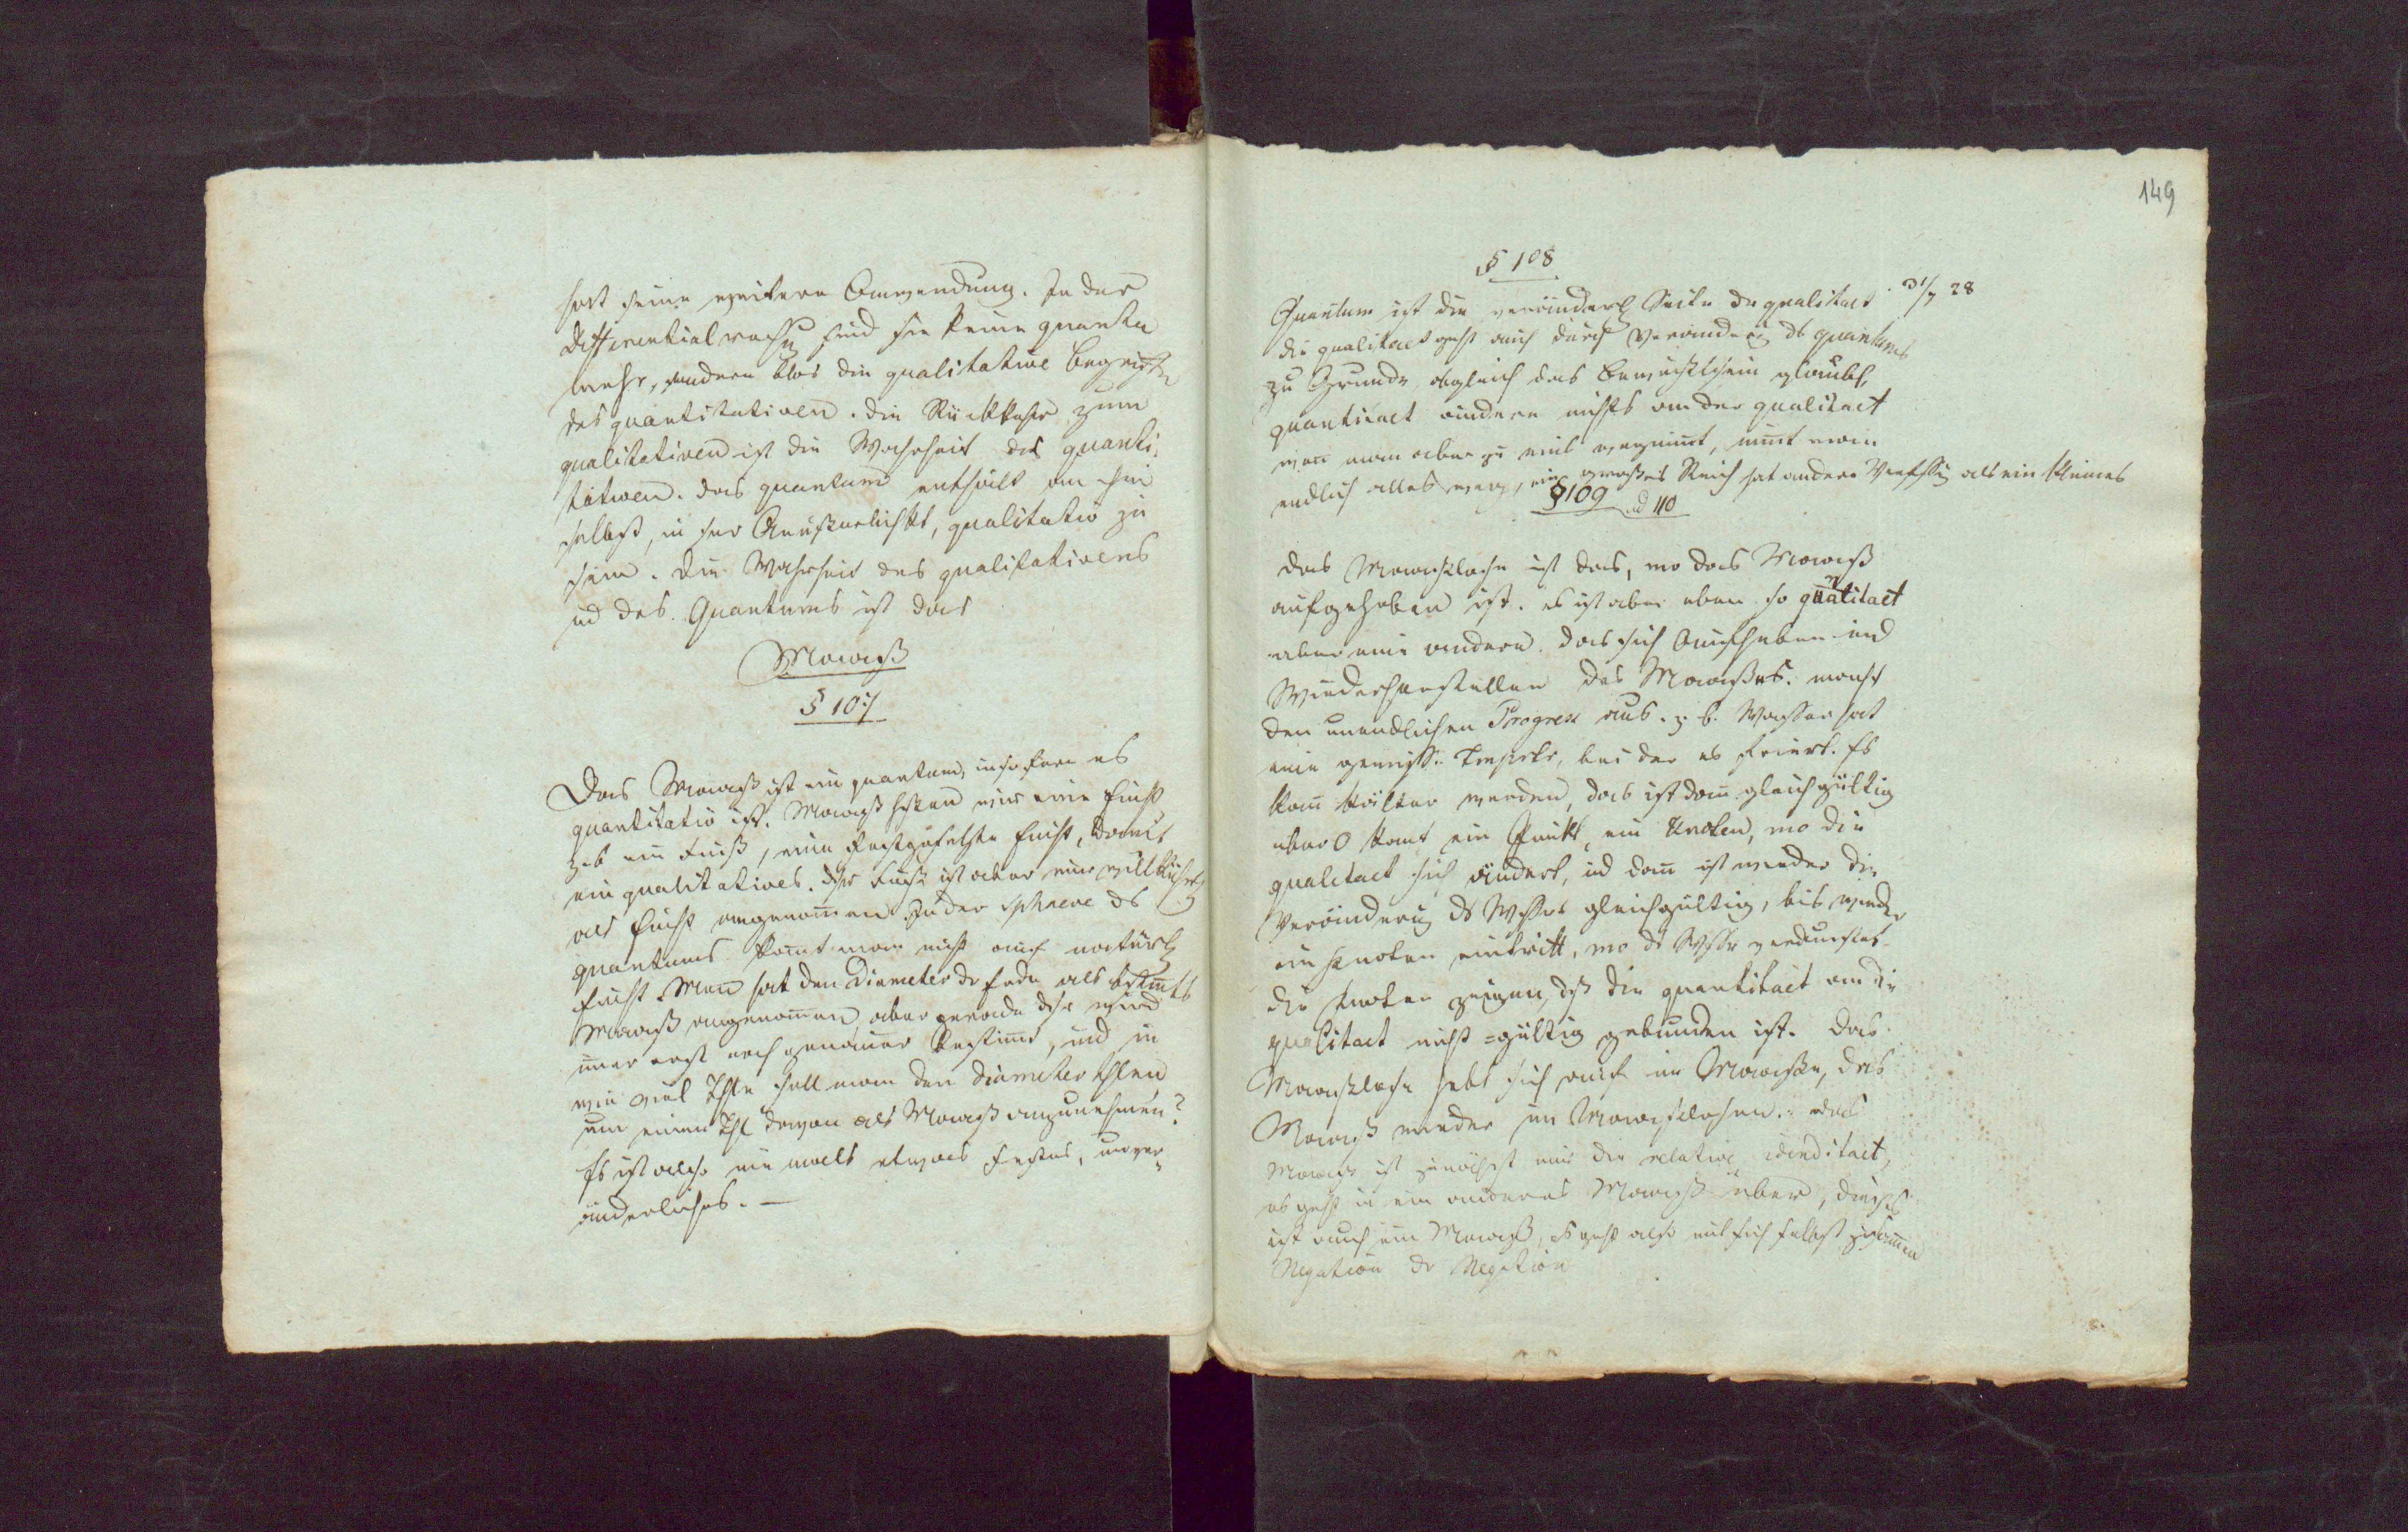 hat seine weitere Anwendung. In der
Differentialrechn sind sie keine quanta
mehr, sondern blos die qualitative Begriffe
des quantitativen. Die Rückkehr zum
qualitativen ist die Wahrheit des quanti-
tativen. das quantum enthält an ihm
selbst, in sr Aeußerlichkt, qualitativ zu
sein. Die Wahrheit des qualitativens
ud des Quantums ist das
Maaß
§ 107
Das Maaß ist ein quantum, insofern es
quantitativ ist. Maaß heißen wir eine Einht
z. b ein Fuß, eine festgesetzte Einht, damit
ein qualitatives. Dsr Fuß ist aber nur willkührl
als Einht angenom̄en. In der Sphaere ds
quantums kom̄t man nicht auf natürl
Einht. Man hat den Diameter dr Erde als bestim̄ts
Maaß angenom̄en, aber gerade dsr wird
im̄er erst noch genauer bestim̄t, und in
wie viel Thle soll man den Diameter thlen
um einen Thl davon als Maaß anzunehmen?
Es ist also niemals etwas festes, unver-
änderliches. —
149
§ 108
Quantum ist die veränderl Seite dr qualitaet. 31/7 28
die qualitaet geht auch durch Verändrg ds quantums
zu Grunde, obgleich das Bewußtsein glaubt,
quantitaet ändere nichts an der qualitaet
wen̄ man aber zu viel wegnim̄t, nim̄t man
endlich alles weg, ein großes Reich hat andere Verfssg als ein kleines
§ 109 ud 110
das Maaßlose ist das, wo das Maaß
aufgehoben ist. es ist aber eben so qualitaet
aber eine andere. das sich Aufheben und
Wiederherstellen des Maaßes macht
den unendlichen Progress aus. z. b. Wasser hat
eine gewisse Temprtr, bei der es friert. Es
kan̄ kälter werden, das ist dan̄ gleichgültig
aber 0 kom̄t ein Punkt, ein Knoten, wo die
qualitaet sich ändert, ud dan̄ ist wieder die
Veränderung ds Wssrs gleichgültig, bis wieder
ein Knoten eintritt, wo ds Wssr verdunstet.
die Knoten zeigen, dß die quantitaet an die
qualitaet nicht =gültig gebunden ist. Das
Maaßlose hebt sich auf im Maaße, das
Maaß wieder im Maaßlosen. das
Maaß ist zunächst nur die relative identitaet,
es geht in ein anderes Maaß über, dieses
ist auch ein Maaß, es geht also mit sich selbst zusam̄en
Negation dr Negation